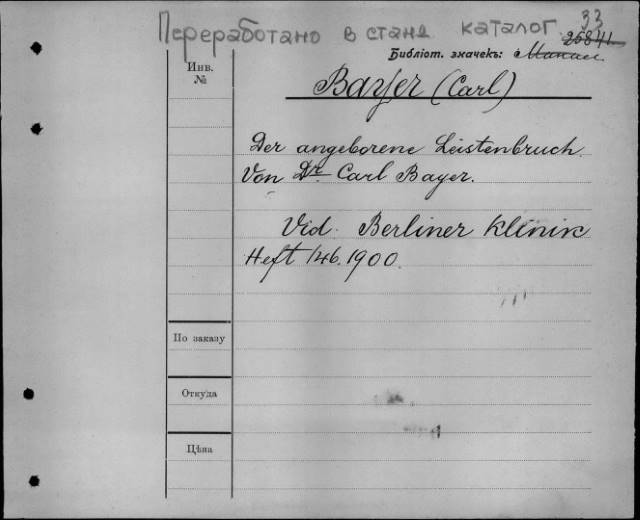 Переработано в станд каталог. 33
25841
Библіот. значекъ:
Инв.
№
Bayer (Carl)
Der angeborene Leistenbruch.
Von Dr. Carl Bayer.
Vid. Berliner Klinik
Heft 146. 1900.
По заказу
Откуда
Цѣна